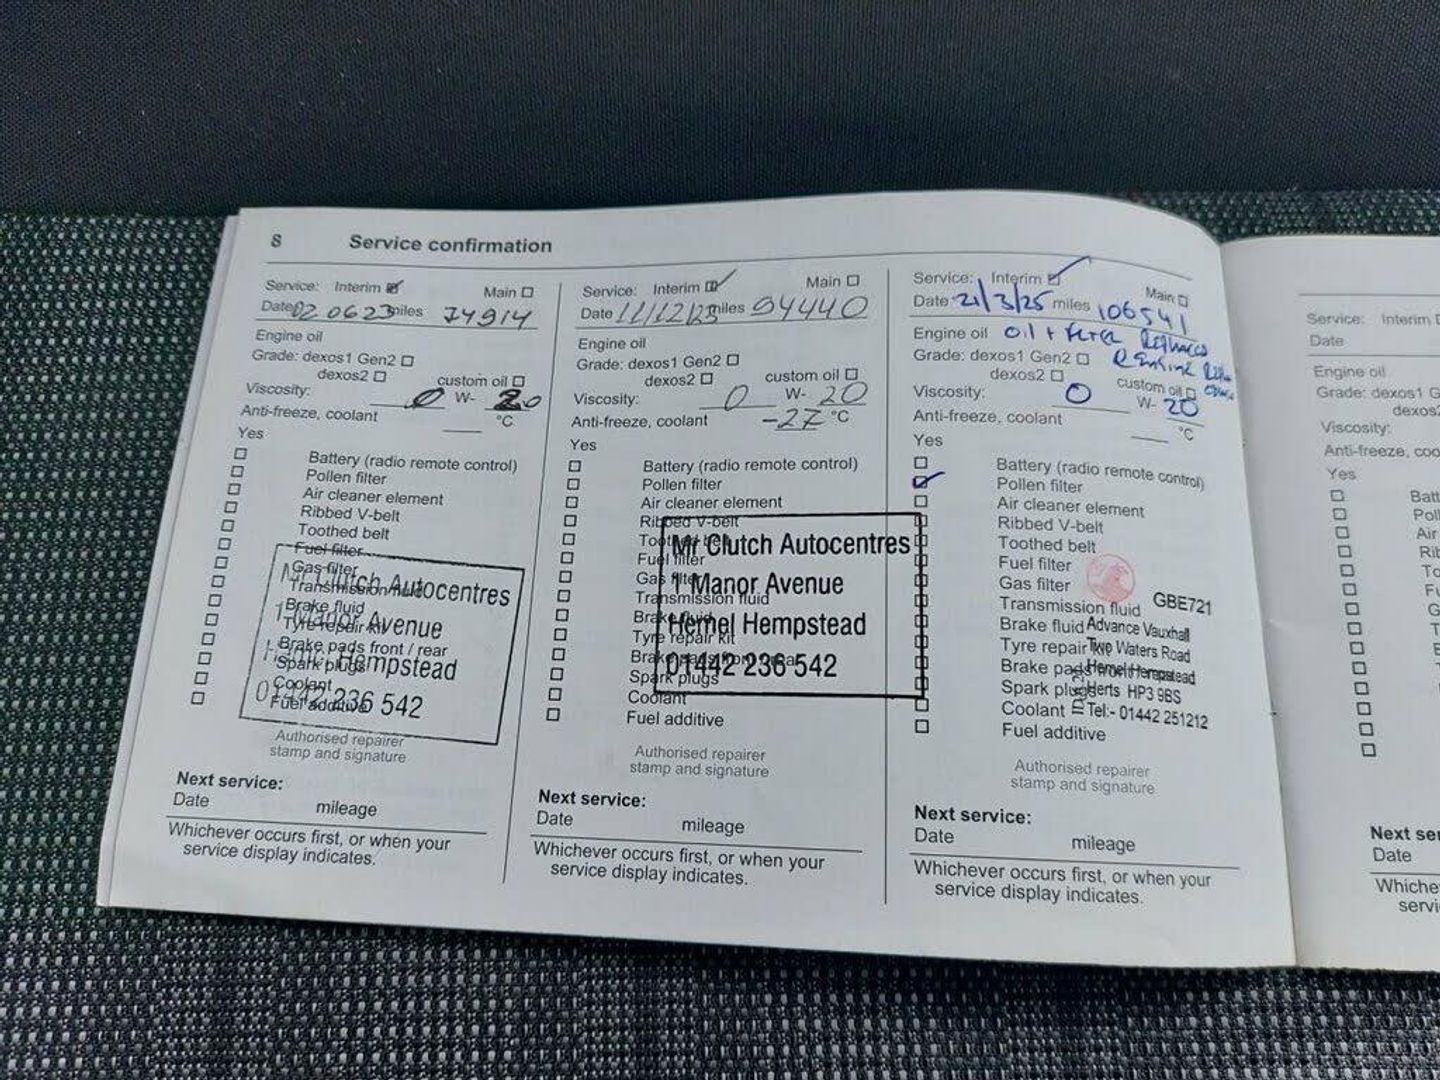 8 Service confirmation
Service: Interim Main
Date 02 06 23 miles 74914
Engine oil
Grade: dexos1 Gen2
dexos2 custom oil
Viscosity: 0 W- 20
Anti-freeze, coolant °C
Yes
Battery (radio remote control)
Pollen filter
Air cleaner element
Ribbed V-belt
Toothed belt
Fuel filter
Gas filter
Transmission fluid
Brake fluid
Tyre repair kit
Brake pads front / rear
Spark plugs
Coolant
Fuel additive
Mr Clutch Autocentres
1 Manor Avenue
Hemel Hempstead
01442 236 542
Authorised repairer
stamp and signature
Next service:
Date mileage
Whichever occurs first, or when your
service display indicates.
Service: Interim Main
Date 11/12/23 miles 94440
Engine oil
Grade: dexos1 Gen2
dexos2 custom oil
Viscosity: 0 W- 20
Anti-freeze, coolant -27 °C
Yes
Battery (radio remote control)
Pollen filter
Air cleaner element
Ribbed V-belt
Toothed belt
Fuel filter
Gas filter
Transmission fluid
Brake fluid
Tyre repair kit
Brake pads front / rear
Spark plugs
Coolant
Fuel additive
Mr Clutch Autocentres
1 Manor Avenue
Hemel Hempstead
01442 236 542
Authorised repairer
stamp and signature
Next service:
Date mileage
Whichever occurs first, or when your
service display indicates.
Service: Interim Main
Date 21/3/25 miles 106541
Engine oil Oil + Filter
Grade: dexos1 Gen2
dexos2 custom oil
Viscosity: 0 W- 20
Anti-freeze, coolant °C
Yes
Battery (radio remote control)
Pollen filter
Air cleaner element
Ribbed V-belt
Toothed belt
Fuel filter
Gas filter
Transmission fluid
Brake fluid
Tyre repair kit
Brake pads
Spark plugs
Coolant
Fuel additive
GBE721
Advance Vauxhall
Two Waters Road
Hemel Hempstead
Herts HP3 9BS
Tel:- 01442 251212
Authorised repairer
stamp and signature
Next service:
Date mileage
Whichever occurs first, or when your
service display indicates.
Service: Interim
Date
Engine oil
Grade: dexos1 G
dexos2
Viscosity:
Anti-freeze, coo
Yes
Batt
Poll
Air
Rib
To
Fu
G
T
Next ser
Date
Whiche
servi